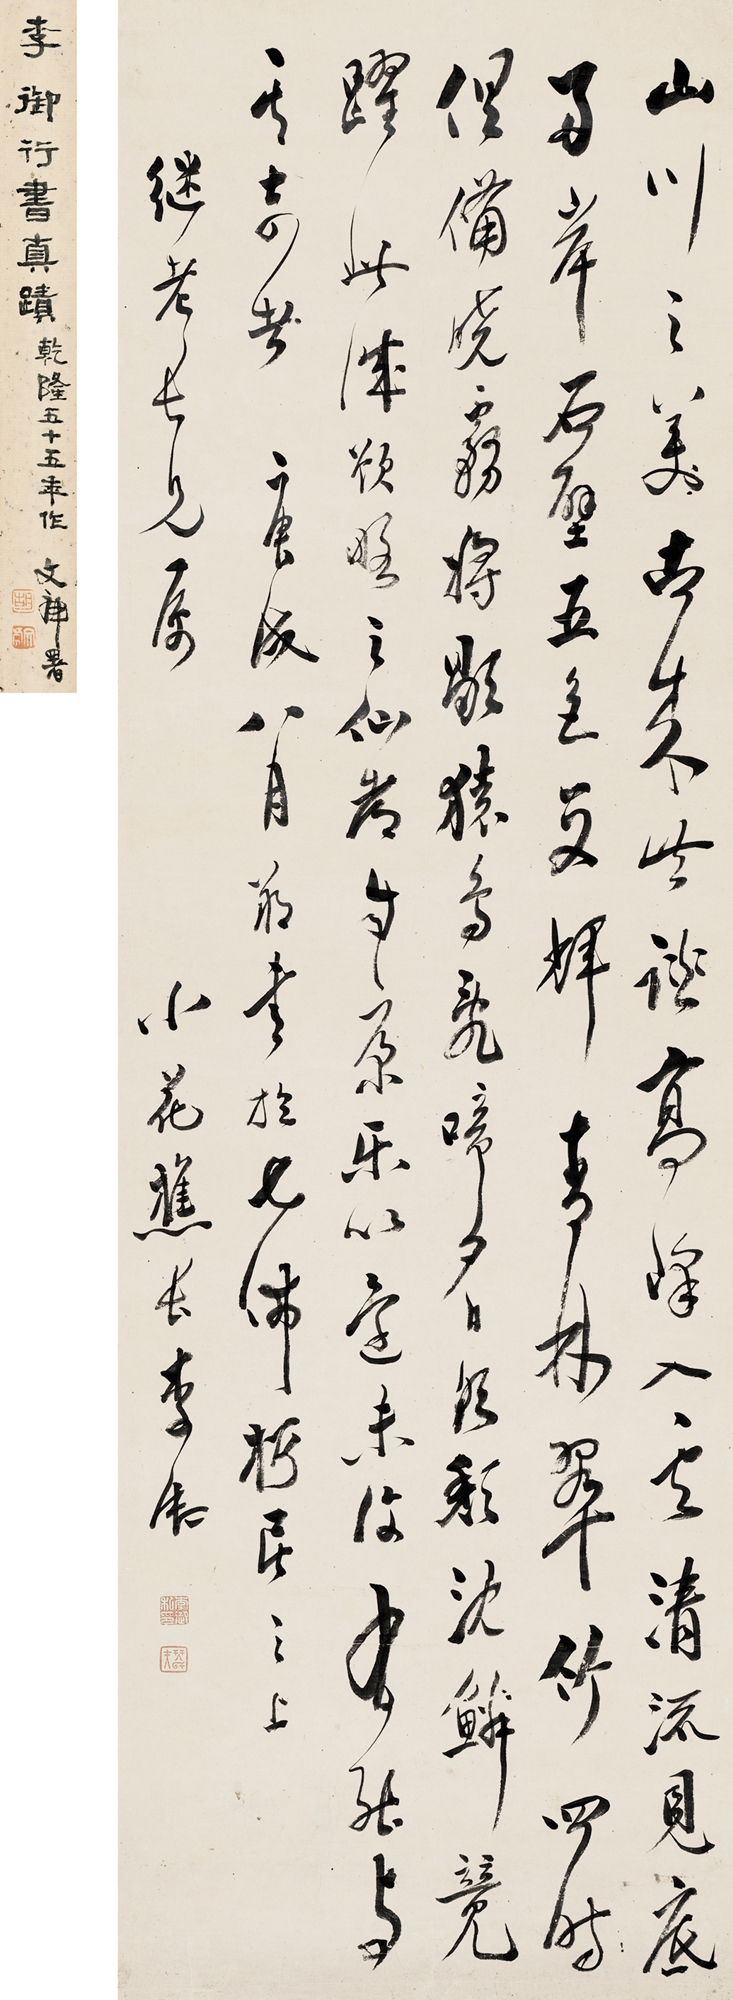 山川之美古来共談高峰入雲清流見底
两岸石壁五色交輝青林翠竹四時
俱備曉霧將歇猿鳥亂啼夕日欲頹沈鱗競
躍此誠欲界之仙都自康樂以還未復有能与
其奇者 庚戌八月 書於七佛 居之上
继老長兄属 小花樵長李御
李御行書真蹟 乾隆五十五年作 文 署